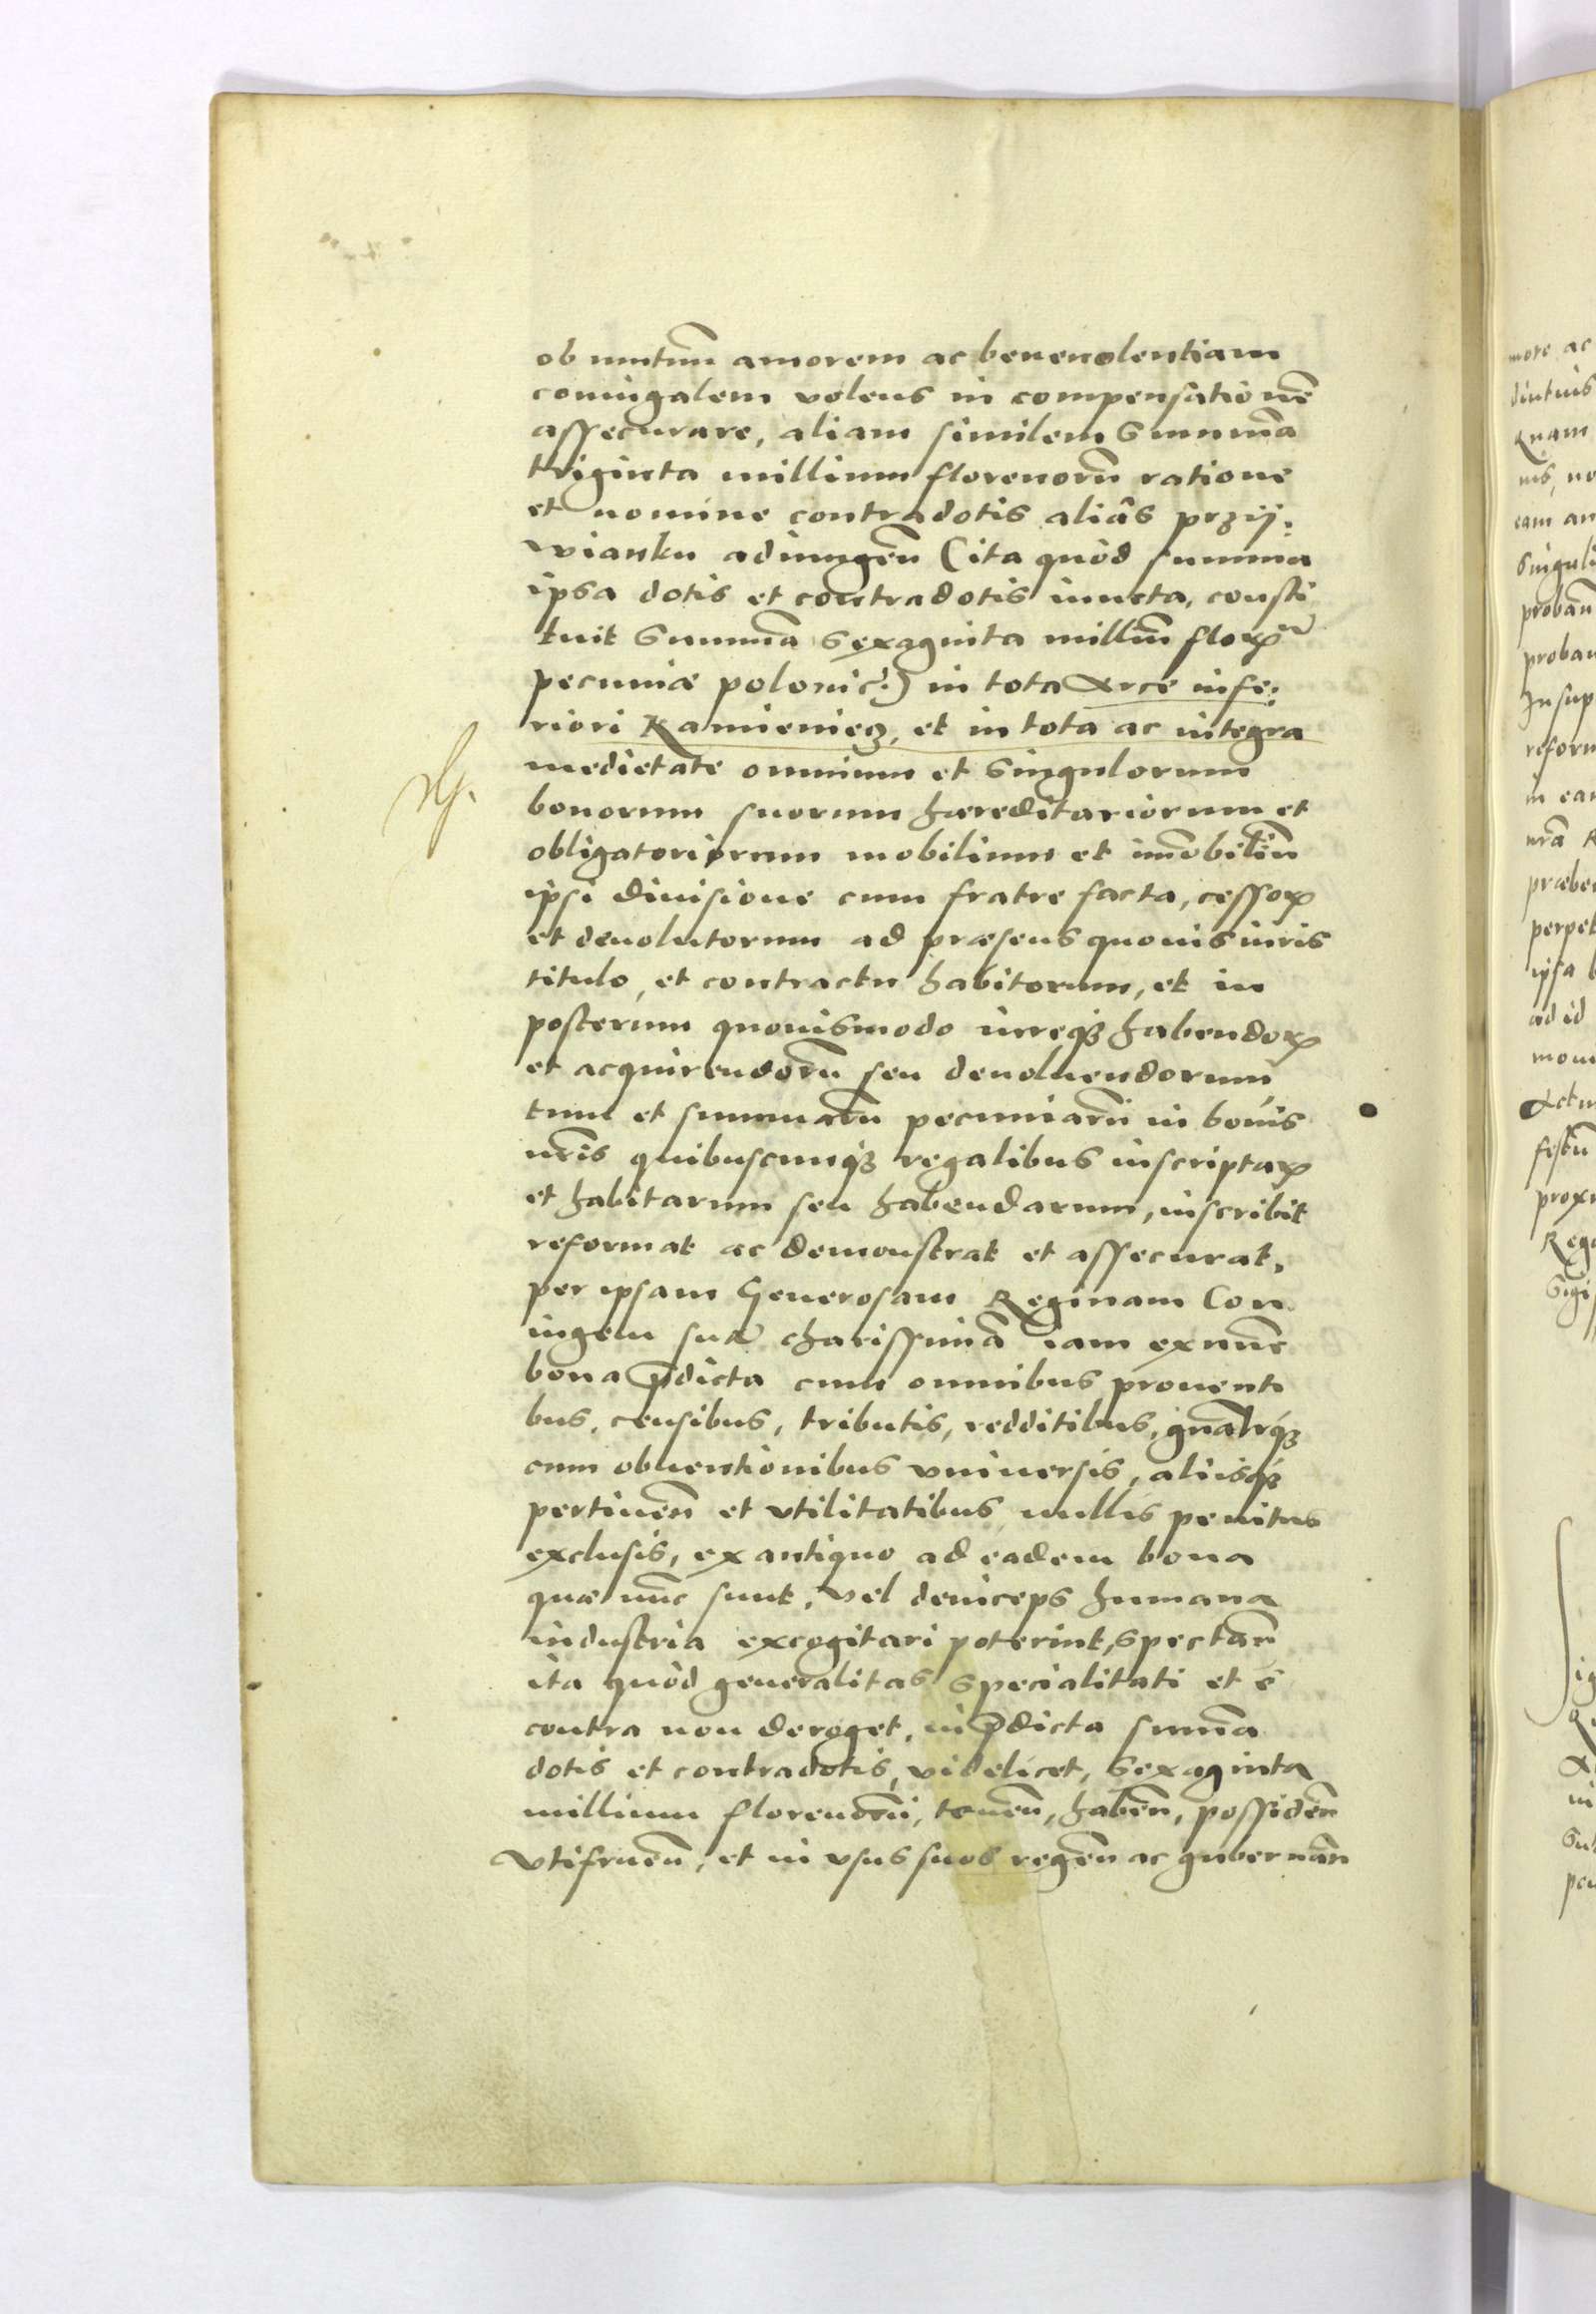 ob mutuū amorem ac beneuolentiam
coniugalem volens in compensationē
assecurare, aliam similem Summā
triginta millium florenorū ratione
et nomine contradotis aliâs przÿ:
wianku adiungeñ (ita quòd summa
ipsa dotis et contradotis iuncta, consti
tuit Summā sexaginta milliū floꝝ
pecuniæ polonic:) in tota Arce infe:
riori Kamieniecz, et in tota ac integra
medietate omnium et Singulorum
bonorum suorum hæreditariorum et
obligatoriorum mobilium et im̄obiliū
ipsi diuisione cum fratre facta, cessoꝝ
et deuolutorum ad præsens quouis iuris
titulo, et contractu habitorum, et in
posterum quouismodo iureqꝫ habendoꝝ
et acquirendorū seu deuoluendorum
tum et summarū pecuniarū in bonis
nr̄is quibuscunqꝫ regalibus inscriptaꝝ
et habitarum seu habendarum, inscribit
reformat ac demonstrat et assecurat,
per ipsam Generosam Reginam Con
iugem suā charissimā iam ex nūc
bona p̄dicta cum omnibus prouenti
bus, censibus, tributis, redditibus, gn̄alr̄qꝫ
cum obuentionibus vniuersis, aliisqꝫ
pertineñ et vtilitatibus nullis penitus
exclusis, ex antiquo ad eadem bona
quæ nūc sunt, vel deinceps humana
industria excogitari poterint, spectañ
ita quòd generalitas Specialitati et è
contra non deroget, in p̄dicta sum̄a
dotis et contradotis, videlicet, Sexaginta
millium florenorū, teneñ, habeñ, possideñ
vtifrueñ, et in vsus suos regeñ ac gubernañ